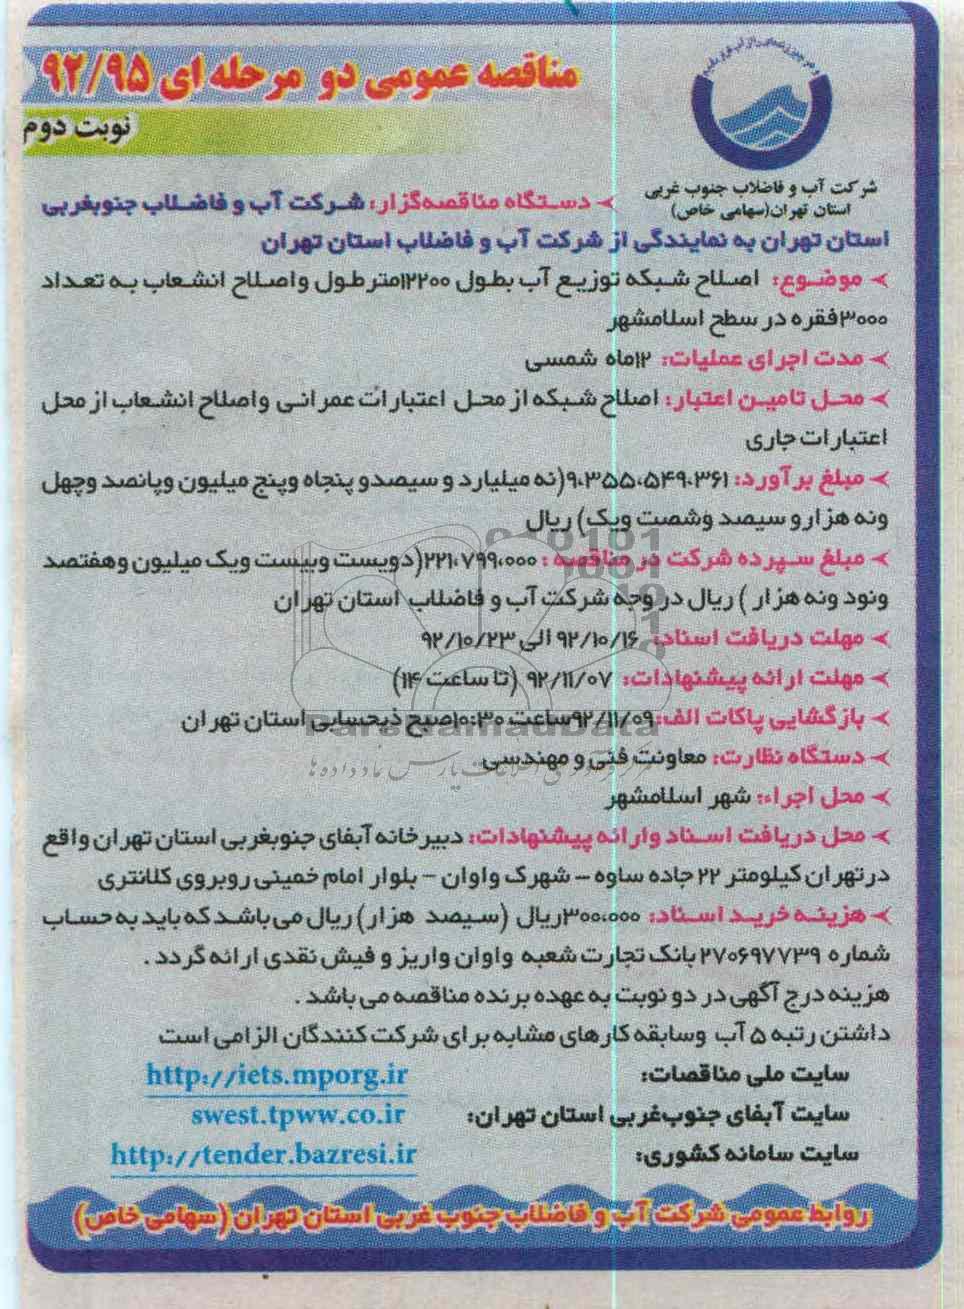 مناقصه عمومی دو مرحله ای ۹۲/۹۵
نوبت دوم
شرکت آب و فاضلاب جنوب غربی
استان تهران(سهامی خاص)
دستگاه مناقصه‌گزار: شرکت آب و فاضلاب جنوبغربی
استان تهران به نمایندگی از شرکت آب و فاضلاب استان تهران
موضوع: اصلاح شبکه توزیع آب بطول ۱۲۲۰۰متر طول واصلاح انشعاب به تعداد
۳۰۰۰فقره در سطح اسلامشهر
مدت اجرای عملیات: ۱۲ماه شمسی
محل تامین اعتبار: اصلاح شبکه از محل اعتبارات عمرانی واصلاح انشعاب از محل
اعتبارات جاری
مبلغ برآورد: ۹،۳۵۵،۵۴۹،۳۶۱(نه میلیارد و سیصدو پنجاه وپنج میلیون وپانصد وچهل
ونه هزارو سیصد وشصت ویک) ریال
مبلغ سپرده شرکت در مناقصه : ۲۲۱،۷۹۹،۰۰۰(دویست وبیست ویک میلیون وهفتصد
ونود ونه هزار ) ریال در وجه شرکت آب و فاضلاب استان تهران
مهلت دریافت اسناد: ۹۲/۱۰/۱۶ الی ۹۲/۱۰/۲۳
مهلت ارائه پیشنهادات: ۹۲/۱۱/۰۷ (تا ساعت ۱۴)
بازگشایی پاکات الف:۹۲/۱۱/۰۹ساعت ۱۰:۳۰صبح ذیحسابی استان تهران
ParsNamadData
دستگاه نظارت: معاونت فنی و مهندسی
محل اجراء: شهر اسلامشهر
محل دریافت اسناد وارائه پیشنهادات: دبیرخانه آبفای جنوبغربی استان تهران واقع
درتهران کیلومتر ۲۲ جاده ساوه – شهرک واوان – بلوار امام خمینی روبروی کلانتری
هزینه خرید اسناد: ۳۰۰،۰۰۰ریال (سیصد هزار) ریال می‌باشد که باید به حساب
شماره ۲۷۰۶۹۷۷۳۹ بانک تجارت شعبه واوان واریز و فیش نقدی ارائه گردد .
هزینه درج آگهی در دو نوبت به عهده برنده مناقصه می باشد .
داشتن رتبه ۵ آب وسابقه کارهای مشابه برای شرکت کنندگان الزامی است
سایت ملی مناقصات: http://iets.mporg.ir
سایت آبفای جنوب‌غربی استان تهران: swest.tpww.co.ir
سایت سامانه کشوری: http://tender.bazresi.ir
روابط عمومی شرکت آب و فاضلاب جنوب غربی استان تهران (سهامی خاص)